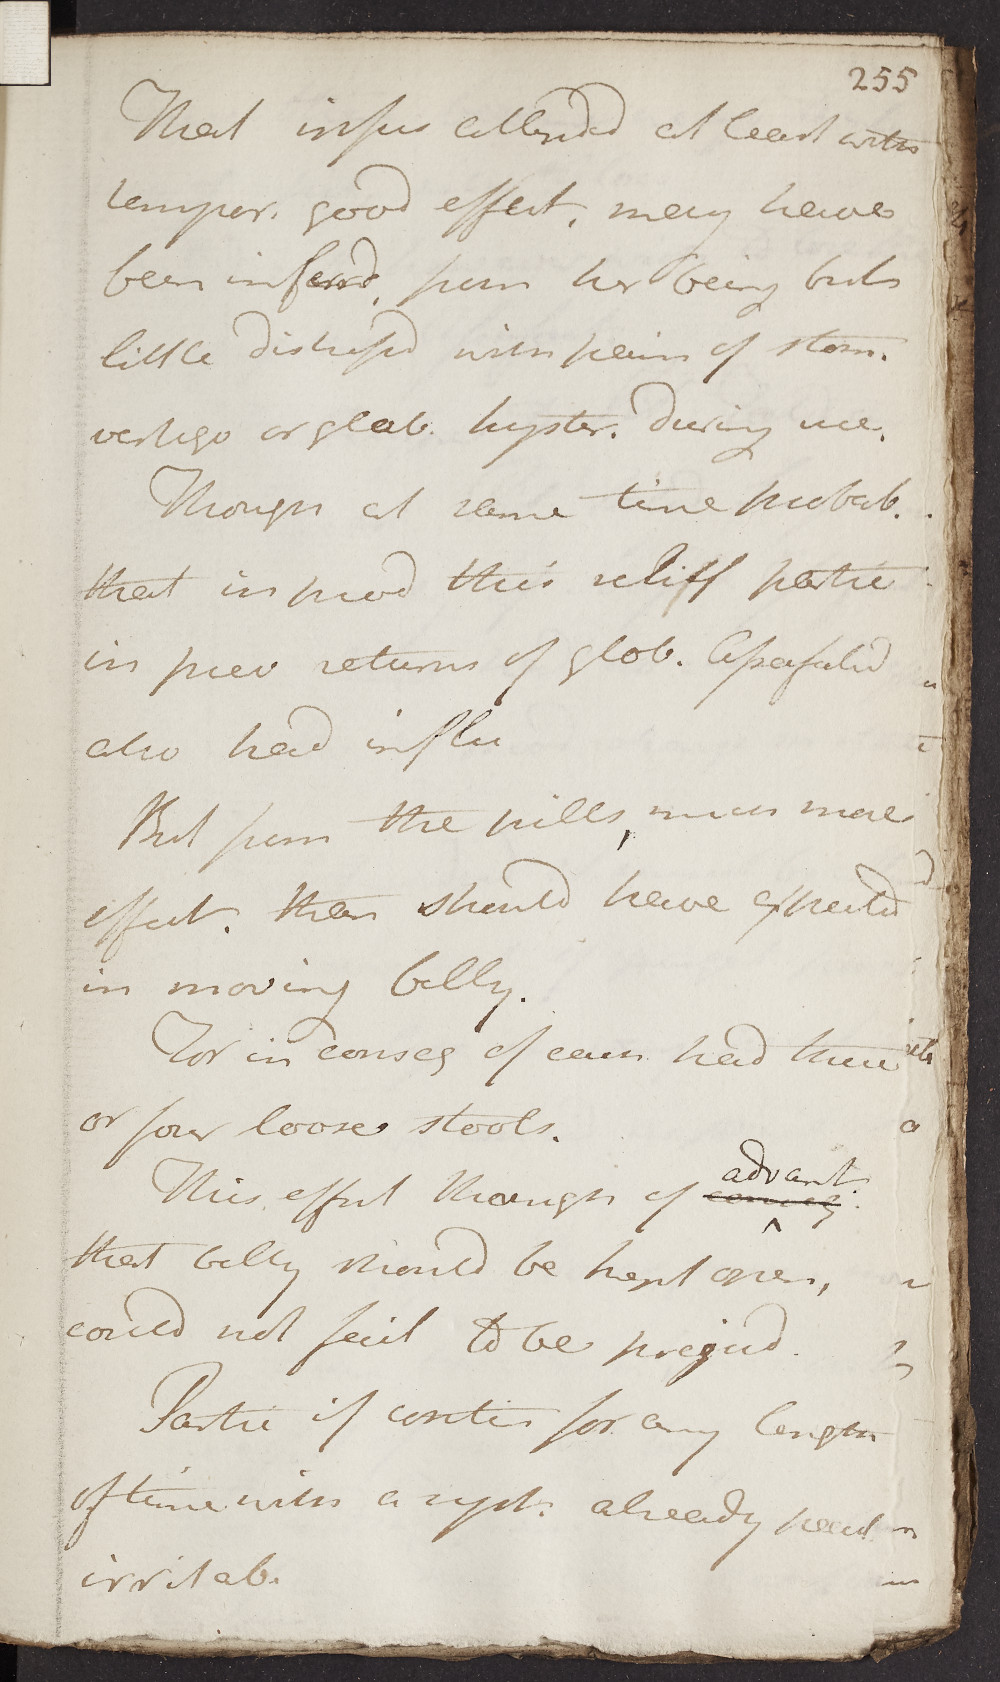 255
That infus attended at least with
tempor. good effect, may have
been inferrd, from her being but
little distressd with pain of stom.
vertigo or glob. hyster. during use.
Though at same time probab.
that in prod this relief partic
in prev returns of glob. Asafoetid
also had influ
But from the pills, much more
effect. than should have expected
in moving belly.
For in conseq of each had three
or four loose stools.
This effect though of advant.
that belly should be kept open,
could not fail to be prejud.
Partic if contin for any length
of time with a syst. already
irritab.